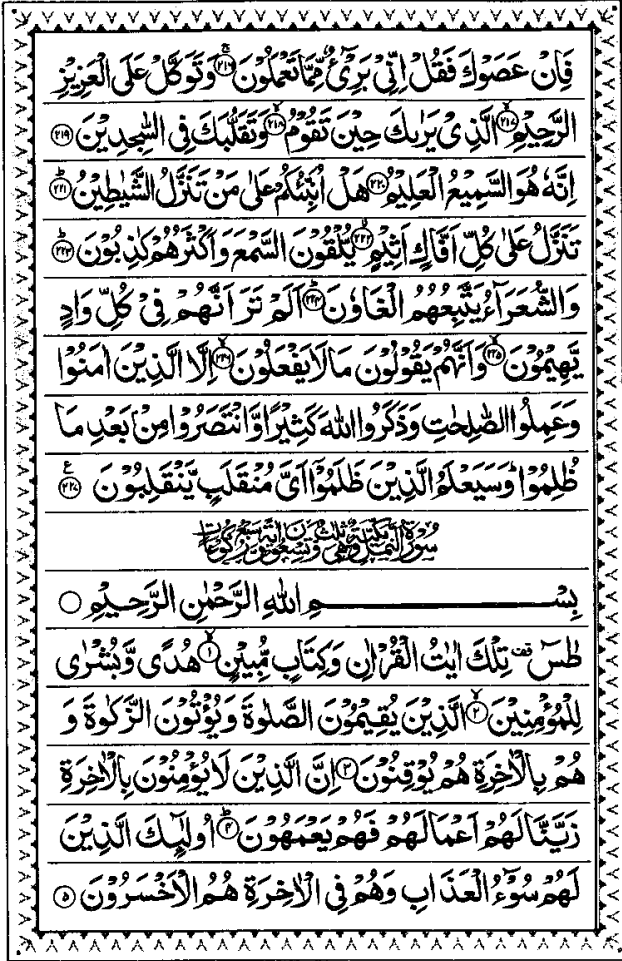 فَاِنْ عَصَوْكَ فَقُلْ اِنِّیْ بَرِیْٓءٌ مِّمَّا تَعْمَلُوْنَ ﴿۲۱۶﴾ۚ وَتَوَكَّلْ عَلَی الْعَزِیْزِ
الرَّحِیْمِ ﴿۲۱۷﴾ۙ الَّذِیْ یَرٰىكَ حِیْنَ تَقُوْمُ ﴿۲۱۸﴾ۙ وَتَقَلُّبَكَ فِی السّٰجِدِیْنَ ﴿۲۱۹﴾
اِنَّهٗ هُوَ السَّمِیْعُ الْعَلِیْمُ ﴿۲۲۰﴾ هَلْ اُنَبِّئُكُمْ عَلٰی مَنْ تَنَزَّلُ الشَّیٰطِیْنُ ﴿۲۲۱﴾ؕ
تَنَزَّلُ عَلٰی كُلِّ اَفَّاكٍ اَثِیْمٍ ﴿۲۲۲﴾ۙ یُّلْقُوْنَ السَّمْعَ وَاَكْثَرُهُمْ كٰذِبُوْنَ ﴿۲۲۳﴾ؕ
وَالشُّعَرَآءُ یَتَّبِعُهُمُ الْغَاوٗنَ ﴿۲۲۴﴾ؕ اَلَمْ تَرَ اَنَّهُمْ فِیْ كُلِّ وَادٍ
یَّهِیْمُوْنَ ﴿۲۲۵﴾ۙ وَاَنَّهُمْ یَقُوْلُوْنَ مَا لَا یَفْعَلُوْنَ ﴿۲۲۶﴾ۙ اِلَّا الَّذِیْنَ اٰمَنُوْا
وَعَمِلُوا الصّٰلِحٰتِ وَذَكَرُوا اللّٰهَ كَثِیْرًا وَّانْتَصَرُوْا مِنْۢ بَعْدِ مَا
ظُلِمُوْا ؕ وَسَیَعْلَمُ الَّذِیْنَ ظَلَمُوْۤا اَیَّ مُنْقَلَبٍ یَّنْقَلِبُوْنَ ﴿۲۲۷﴾ ع
سُوْرَةُ النَّمْلِ مَكِّیَّةٌ وَّهِیَ ثَلٰثٌ وَّتِسْعُوْنَ اٰیَةً وَّسَبْعُ رُكُوْعَاتٍ
بِسْمِ اللّٰهِ الرَّحْمٰنِ الرَّحِیْمِ ○
طٰسٓ قف تِلْكَ اٰیٰتُ الْقُرْاٰنِ وَكِتَابٍ مُّبِیْنٍ ﴿۱﴾ۙ هُدًی وَّبُشْرٰی
لِلْمُؤْمِنِیْنَ ﴿۲﴾ۙ الَّذِیْنَ یُقِیْمُوْنَ الصَّلٰوةَ وَیُؤْتُوْنَ الزَّكٰوةَ وَ
هُمْ بِالْاٰخِرَةِ هُمْ یُوْقِنُوْنَ ﴿۳﴾ اِنَّ الَّذِیْنَ لَا یُؤْمِنُوْنَ بِالْاٰخِرَةِ
زَیَّنَّا لَهُمْ اَعْمَالَهُمْ فَهُمْ یَعْمَهُوْنَ ﴿۴﴾ؕ اُولٰٓىِٕكَ الَّذِیْنَ
لَهُمْ سُوْٓءُ الْعَذَابِ وَهُمْ فِی الْاٰخِرَةِ هُمُ الْاَخْسَرُوْنَ ﴿۵﴾